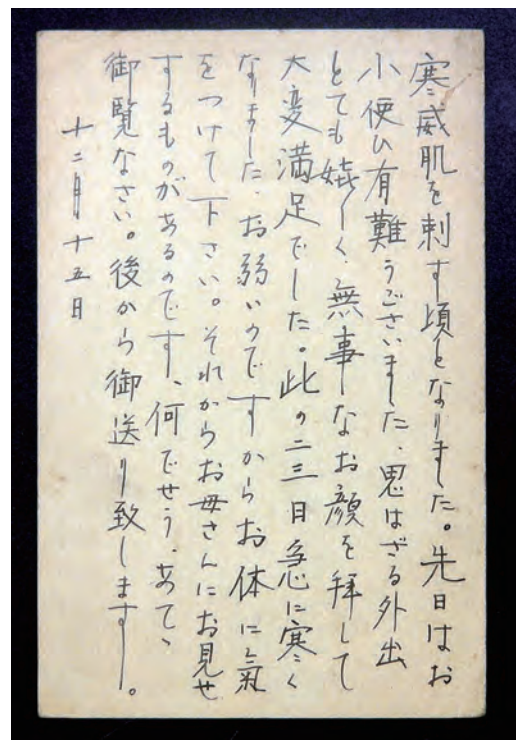 寒威肌を刺す頃となりました。先日はお
小使ひ有難うございました、思はざる外出
とても嬉しく、無事なお顔を拝して
大変満足でした。此の二三日急に寒く
なりました、お弱いのですからお体に氣
をつけて下さい。それからお母さんにお見せ
するものがあるのです、何でせう、あてゝ
御覧なさい。後から御送り致します。
十二月十五日